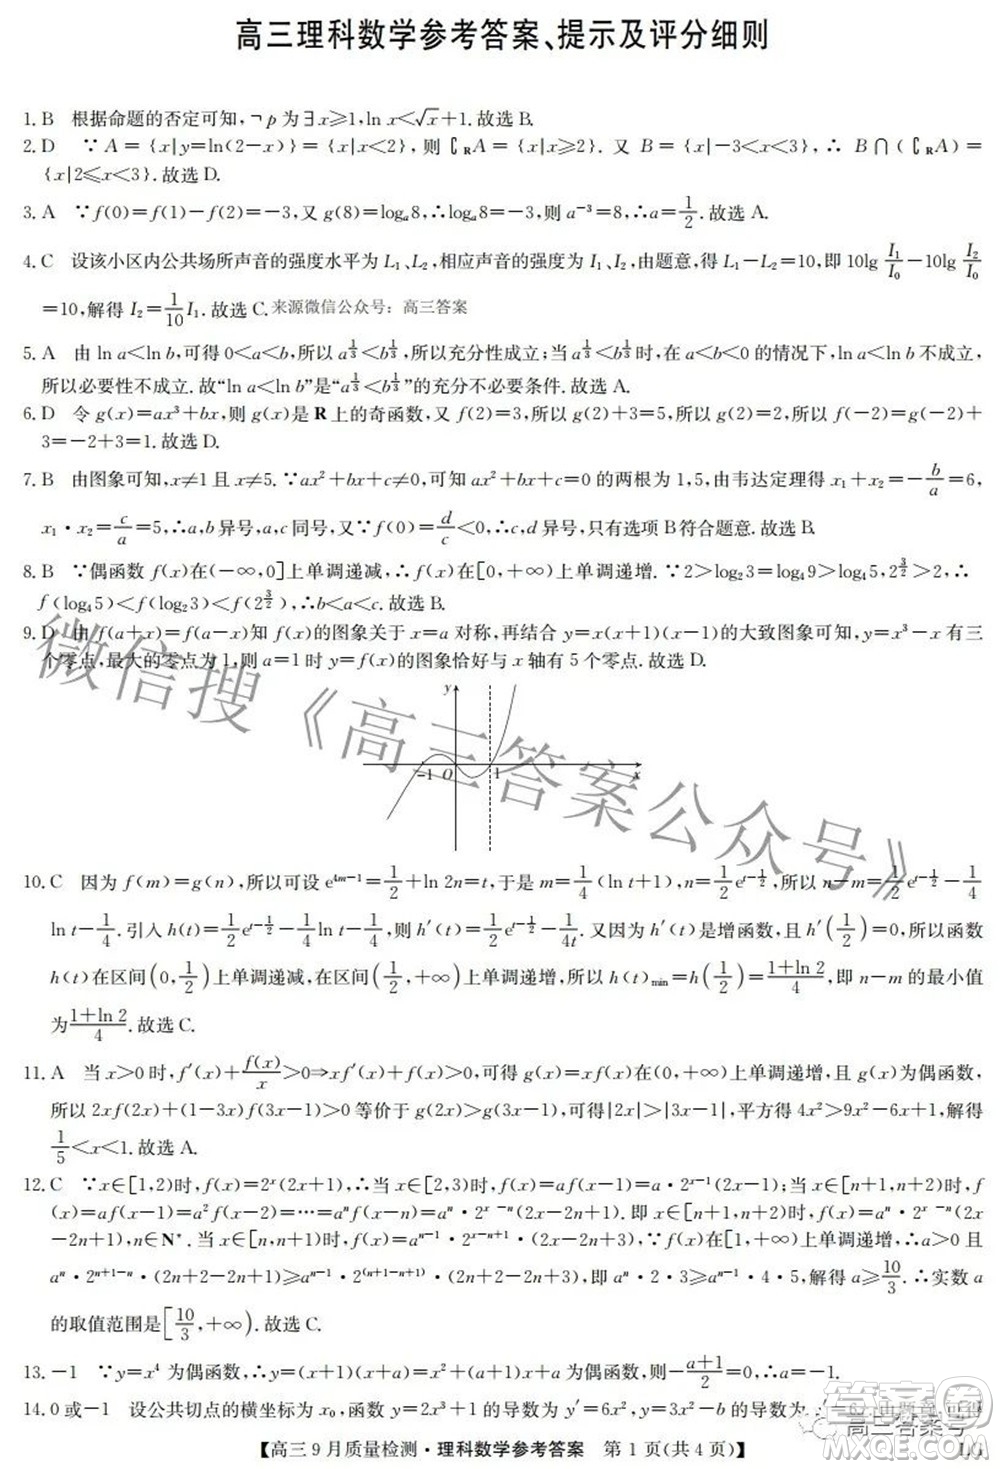 高三理科数学参考答案、提示及评分细则
1. B 根据命题的否定可知,¬p 为∃x≥1,ln x<√x+1.故选 B.
2. D ∵A={x|y=ln(2-x)}={x|x<2},则∁RA={x|x≥2}. 又 B={x|-3<x<3},∴ B∩(∁RA)=
{x|2≤x<3}.故选 D.
3. A ∵f(0)=f(1)-f(2)=-3,又 g(8)=loga8,∴loga8=-3,则 a⁻³=8,∴a=1/2.故选 A.
4. C 设该小区内公共场所声音的强度水平为 L₁、L₂,相应声音的强度为 I₁、I₂,由题意,得 L₁-L₂=10,即 10lg I₁/I₀-10lg I₂/I₀
=10,解得 I₂=1/10 I₁.故选 C.来源微信公众号：高三答案
5. A 由 ln a<ln b,可得 0<a<b,所以 a^(1/3)<b^(1/3),所以充分性成立;当 a^(1/3)<b^(1/3)时,在 a<b<0 的情况下,ln a<ln b 不成立,
所以必要性不成立.故“ln a<ln b”是“a^(1/3)<b^(1/3)”的充分不必要条件.故选 A.
6. D 令 g(x)=ax³+bx,则 g(x)是 R 上的奇函数,又 f(2)=3,所以 g(2)+3=5,所以 g(2)=2,所以 f(-2)=g(-2)+
3=-2+3=1.故选 D.
7. B 由图象可知,x≠1 且 x≠5.∵ax²+bx+c=0 的两根为 1,5,由韦达定理得 x₁+x₂=-b/a=6,
x₁·x₂=c/a=5,∴a,b 异号,a,c 同号,又∵f(0)=d/c<0,∴c,d 异号,只有选项 B 符合题意.故选 B.
8. B ∵偶函数 f(x)在(-∞,0]上单调递减,∴f(x)在[0,+∞)上单调递增.∵2>log₂3=log₄9>log₄5,2^(3/2)>2,∴
f(log₄5)<f(log₂3)<f(2^(3/2)),∴b<a<c.故选 B.
9. D 由 f(a+x)=f(a-x)知 f(x)的图象关于 x=a 对称,再结合 y=x(x+1)(x-1)的大致图象可知,y=x³-x 有三
个零点,最大的零点为 1,a=1 时 y=f(x)的图象恰好与 x 轴有 5 个零点.故选 D.
y
-1 O 1 x
10. C 因为 f(m)=g(n),所以可设 e^(4m-1)=1/2+ln 2n=t,于是 m=1/4(ln t+1),n=1/2 e^(t-1/2),所以 n-m=1/2 e^(t-1/2)-1/4
ln t-1/4.引入 h(t)=1/2 e^(t-1/2)-1/4 ln t-1/4,则 h′(t)=1/2 e^(t-1/2)-1/(4t).又因为 h′(t)是增函数,且 h′(1/2)=0,所以函数
h(t)在区间(0,1/2)上单调递减,在区间(1/2,+∞)上单调递增,所以 h(t)min=h(1/2)=(1+ln 2)/4,即 n-m 的最小值
为(1+ln 2)/4.故选 C.
11. A 当 x>0 时,f′(x)+f(x)/x>0⇒xf′(x)+f(x)>0,可得 g(x)=xf(x)在(0,+∞)上单调递增,g(x)为偶函数,
所以 2xf(2x)+(1-3x)f(3x-1)>0 等价于 g(2x)>g(3x-1),可得|2x|>|3x-1|,平方得 4x²>9x²-6x+1,解得
1/5<x<1.故选 A.
12. C ∵x∈[1,2)时,f(x)=2ˣ(2x+1),当 x∈[2,3)时,f(x)=af(x-1)=a·2ˣ⁻¹(2x-1);当 x∈[n+1,n+2)时,
f(x)=af(x-1)=a²f(x-2)=…=aⁿf(x-n)=aⁿ·2ˣ⁻ⁿ(2x-2n+1).即 x∈[n+1,n+2)时,f(x)=aⁿ·2ˣ⁻ⁿ(2x
-2n+1),n∈N*.当 x∈[n,n+1)时,f(x)=aⁿ⁻¹·2ˣ⁻ⁿ⁺¹·(2x-2n+3),∵f(x)在[1,+∞)上单调递增,∴a>0 且
aⁿ·2ⁿ⁺¹⁻ⁿ·(2n+2-2n+1)≥aⁿ⁻¹·2^((n+1)-n+1)·(2n+2-2n+3),即 aⁿ·2·3≥aⁿ⁻¹·4·5,解得 a≥10/3.∴实数 a
的取值范围是[10/3,+∞).故选 C.
13. -1 ∵y=x⁴ 为偶函数,∴y=(x+1)(x+a)=x²+(a+1)x+a 为偶函数,则-(a+1)/2=0,∴a=-1.
14. 0 或-1 设公共切点的横坐标为 x₀,函数 y=2x³+1 的导数为 y′=6x²
【高三 9 月质量检测·理科数学参考答案 第 1 页(共 4 页)】
微信搜《高三答案公众号》
高三答案号
答案圈
MXQE.COM